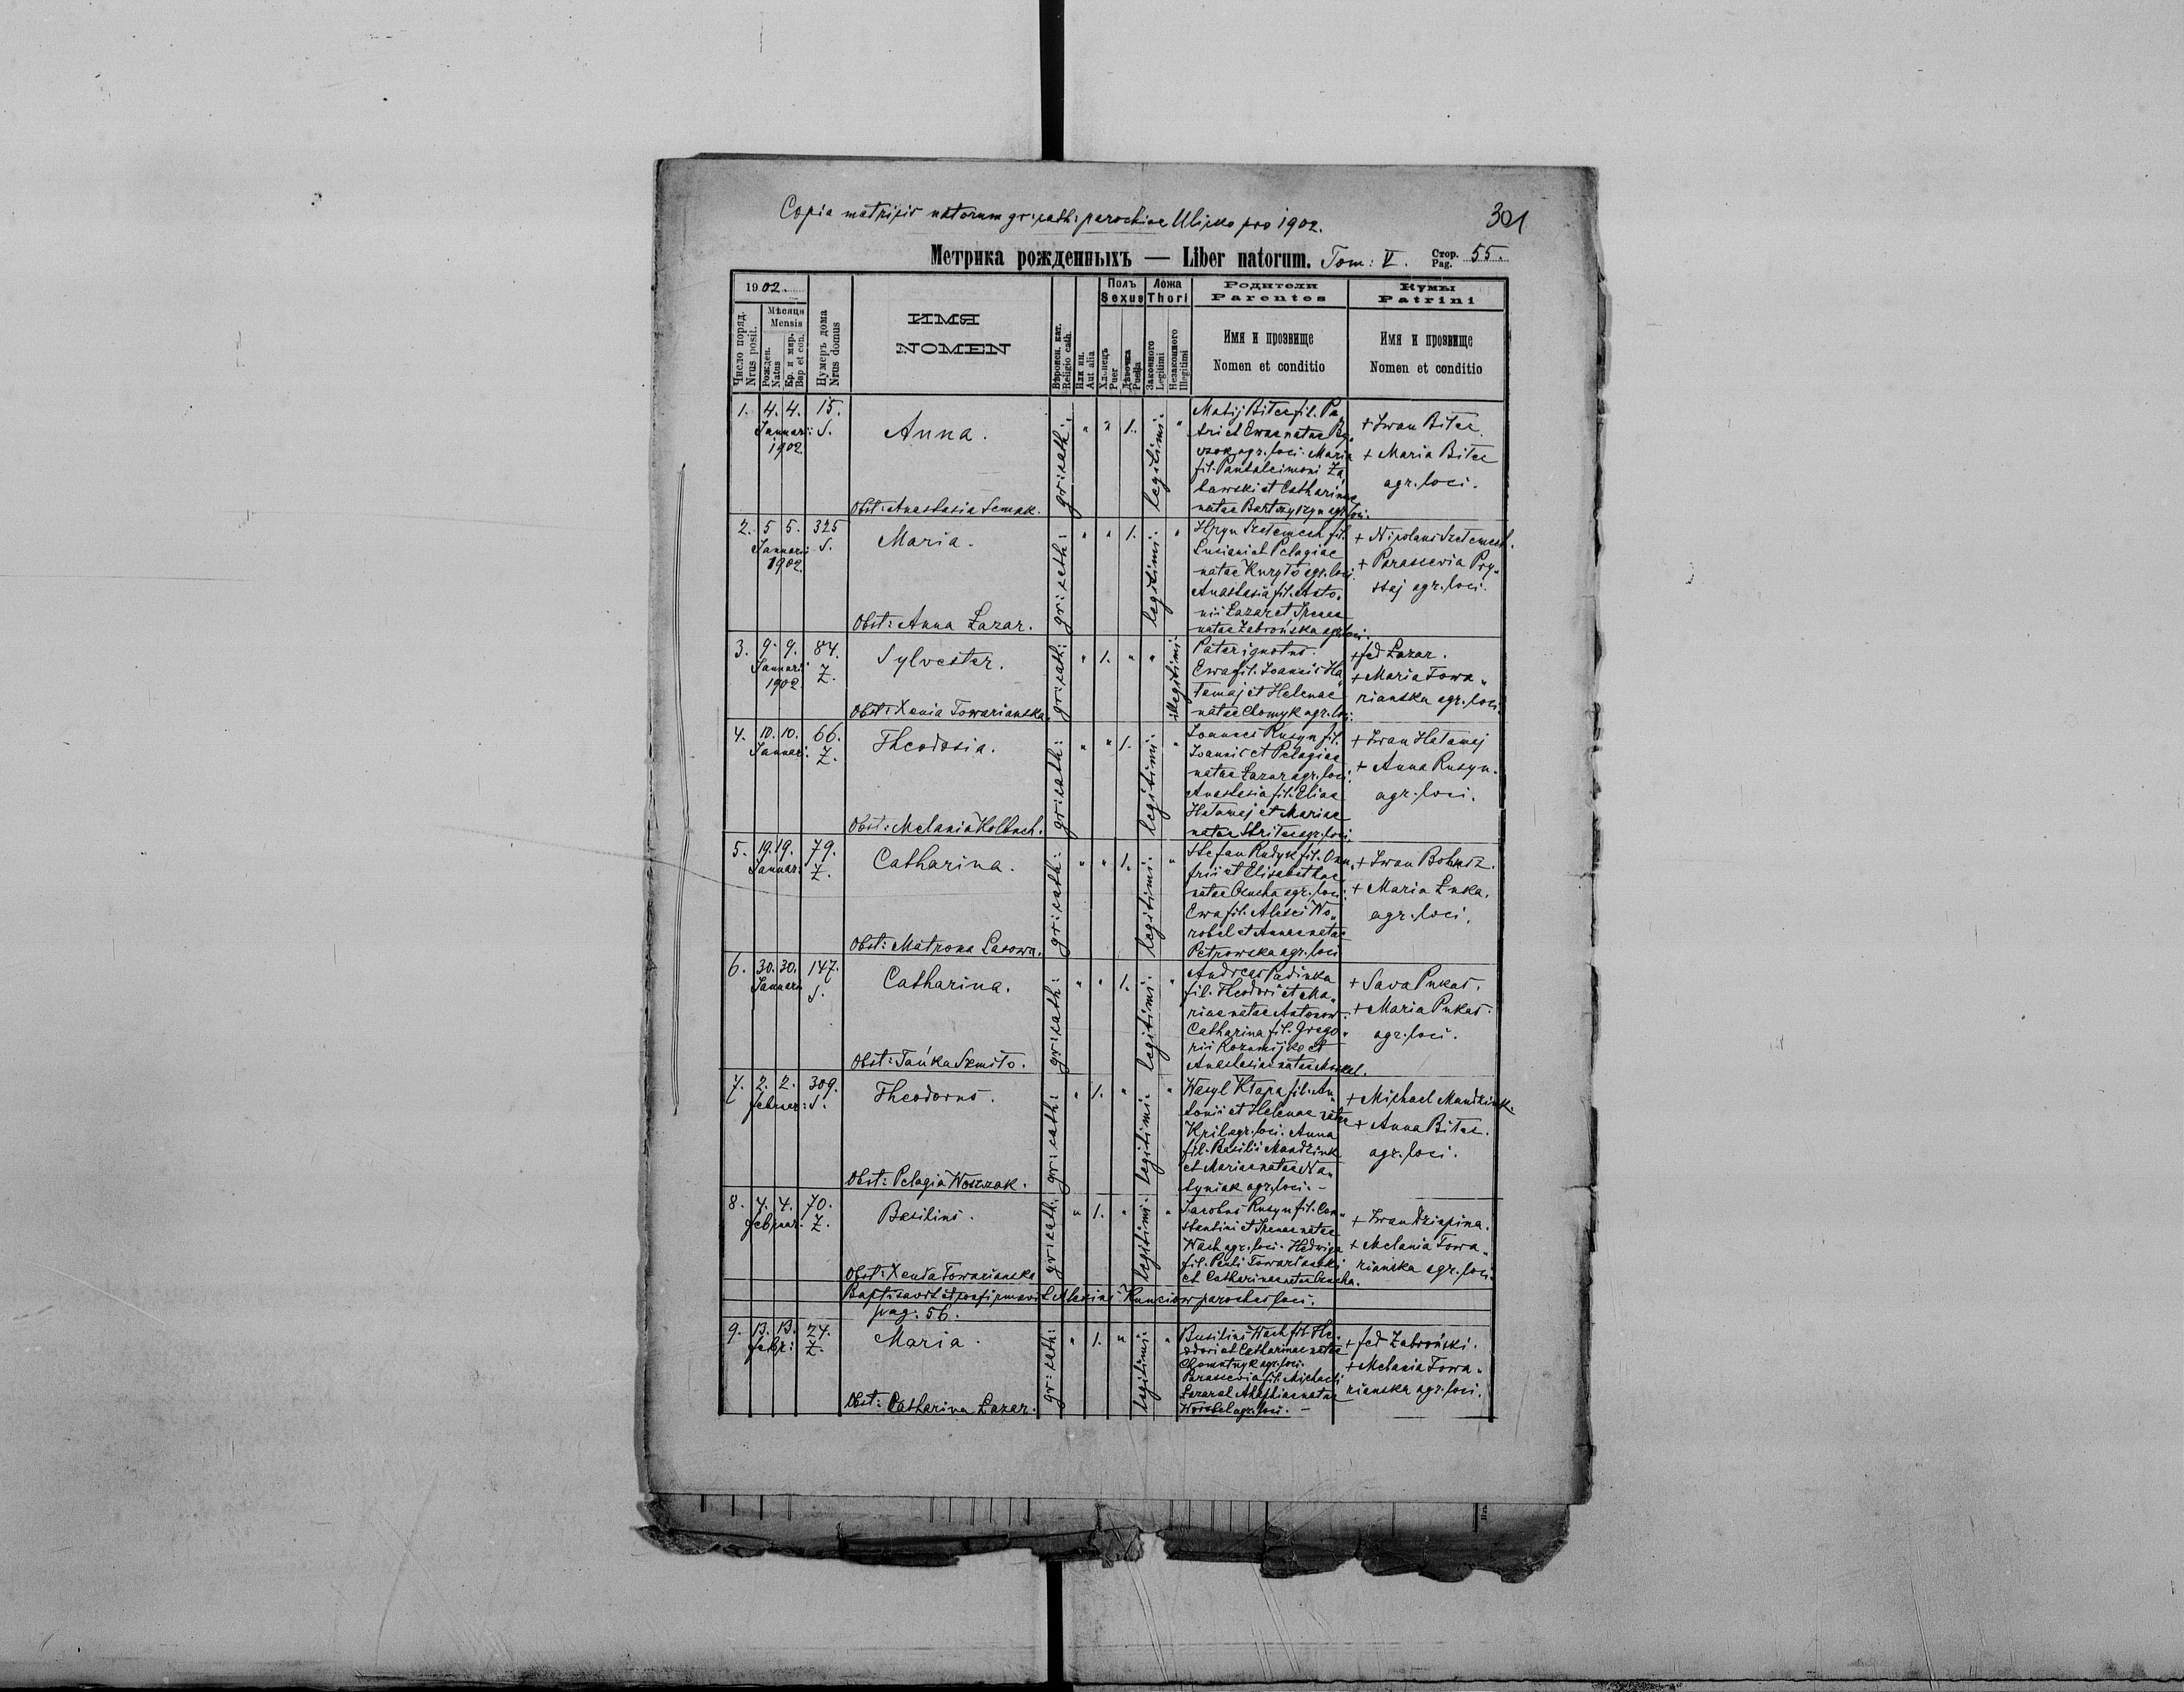 Copia matricis natorum gr: cath: parochiae Ulicko pro 1902.
301
Метрика рожденныхъ — Liber natorum. Tom: V. Стор. Pag. 55.
1902.
Число поряд.
Nrus posit.
Мѣсяця
Mensis
Рожден.
Natus
Кр. и мяр.
Bap et con.
Нумеръ дома
Nrus domus
ИМЯ
NOMEN
Вѣроисп. кат.
Religio cath.
Или ин.
Aut alia
Полъ
Sexus
Хлопецъ
Puer
Дѣвочка
Puella
Ложа
Thori
Законного
Legitimi
Незаконного
Illegitimi
Родители
Parentes
Имя и прозвище
Nomen et conditio
Кумы
Patrini
Имя и прозвище
Nomen et conditio
1. 4. 4. 15.
Januari: S.
1902
Anna.
Obst: Anastasia Semak.
gr: cath:
" " 1.
legitimi.
"
Matij Bitee fil. Pe
tri et Ewae natae
agr. loci. Maria
fil. Pantaleimoni Za
bawski et Catharinae
natae agr. loci.
+ Iwan Bitee
+ Maria Bitee
agr. loci.
2. 5 5. 325
Januari: S.
1902.
Maria.
Obst: Anna Łazar.
gr: cath:
" " 1.
legitimi.
"
Hryn fil.
Luciani et Pelagiae
natae agr. loci.
Anastasia fil. Anto„
nii Łazar et Irenae
natae Zabrońska agr. loci.
+
+ Parascevia Pry„
staj agr. loci.
3. 9. 9. 84.
Januari Z.
1902.
Sylvester.
Obst: Xenia Towarianska.
gr: cath:
" 1. " "
illegitimi.
Pater ignotus.
Ewa fil. Joannis Ha„
tamaj et Helenae
natae Chomyk agr. loci.
+ fed Łazar.
+ Maria Towa„
rianska agr. loci.
4. 10. 10. 66.
Januar: Z.
Theodosia.
Obst: Melania
gr: cath:
" " 1.
legitimi.
"
Joannes Rusyn fil.
Joannis et Pelagiae
natae Łazar agr. loci.
Anastasia fil. Eliae
Hatamaj et Mariae
natae agr. loci.
+ Iwan Hatamaj
+ Anna Rusyn.
agr. loci.
5. 19. 19. 79.
Januar: Z.
Catharina.
Obst: Matrona Lasowa.
gr: cath:
" " 1.
legitimi.
"
Stefan Rudyk fil. Onu„
frii et Elisabethae
natae agr. loci.
Ewa fil. Alexii Wo„
robel et Annae natae
Petrowska agr. loci
+ Iwan
+ Maria Łuka.
agr. loci.
6. 30. 30. 147.
Januar: S.
Catharina.
Obst: Tańka
gr: cath:
" " 1.
legitimi.
"
Andreas Padinka
fil. Theodori et Ma„
riae natae Antonow.
Catharina fil. Grego„
rii et
Anastasiae natae
+ Sava Pukas.
+ Maria Pukas.
agr. loci.
7. 2. 2. 309.
februar: S.
Theodorus.
Obst: Pelagia
gr: cath:
" 1. "
legitimi.
"
Wasyl Kłapa fil. An„
tonii et Helenae natae
Kril agr. loci. Anna
fil. Basilii Mandziuk
et Mariae natae Na„
tyniak agr. loci. –
+ Michael Mandziuk.
+ Anna Bitee.
agr. loci.
8. 4. 4. 70.
februar. Z.
Basilius.
Obst: Xenia Towarianska
gr: cath:
" 1. "
legitimi.
"
Jacobus Rusyn fil. Con„
stantini et Irenae natae
Wach agr. loci. Hedwiga
fil. Pauli Towarianski
et Catharinae natae
+ Iwan
+ Melania Towa„
rianska agr. loci.
Baptisavit et confirmavit Alexius parochus loci.
pag. 56.
9. 13. 13. 24.
febr: Z.
Maria.
Obst: Catharina Łazar.
gr: cath:
" 1. "
legitimi.
"
Basilius Wach fil. The„
odori et Catharinae natae
agr. loci.
Parascevia fil. Michaeli
Łazar et natae
Worobel agr. loci. –
+ fed Zabroński.
+ Melania Towa„
rianska agr. loci.